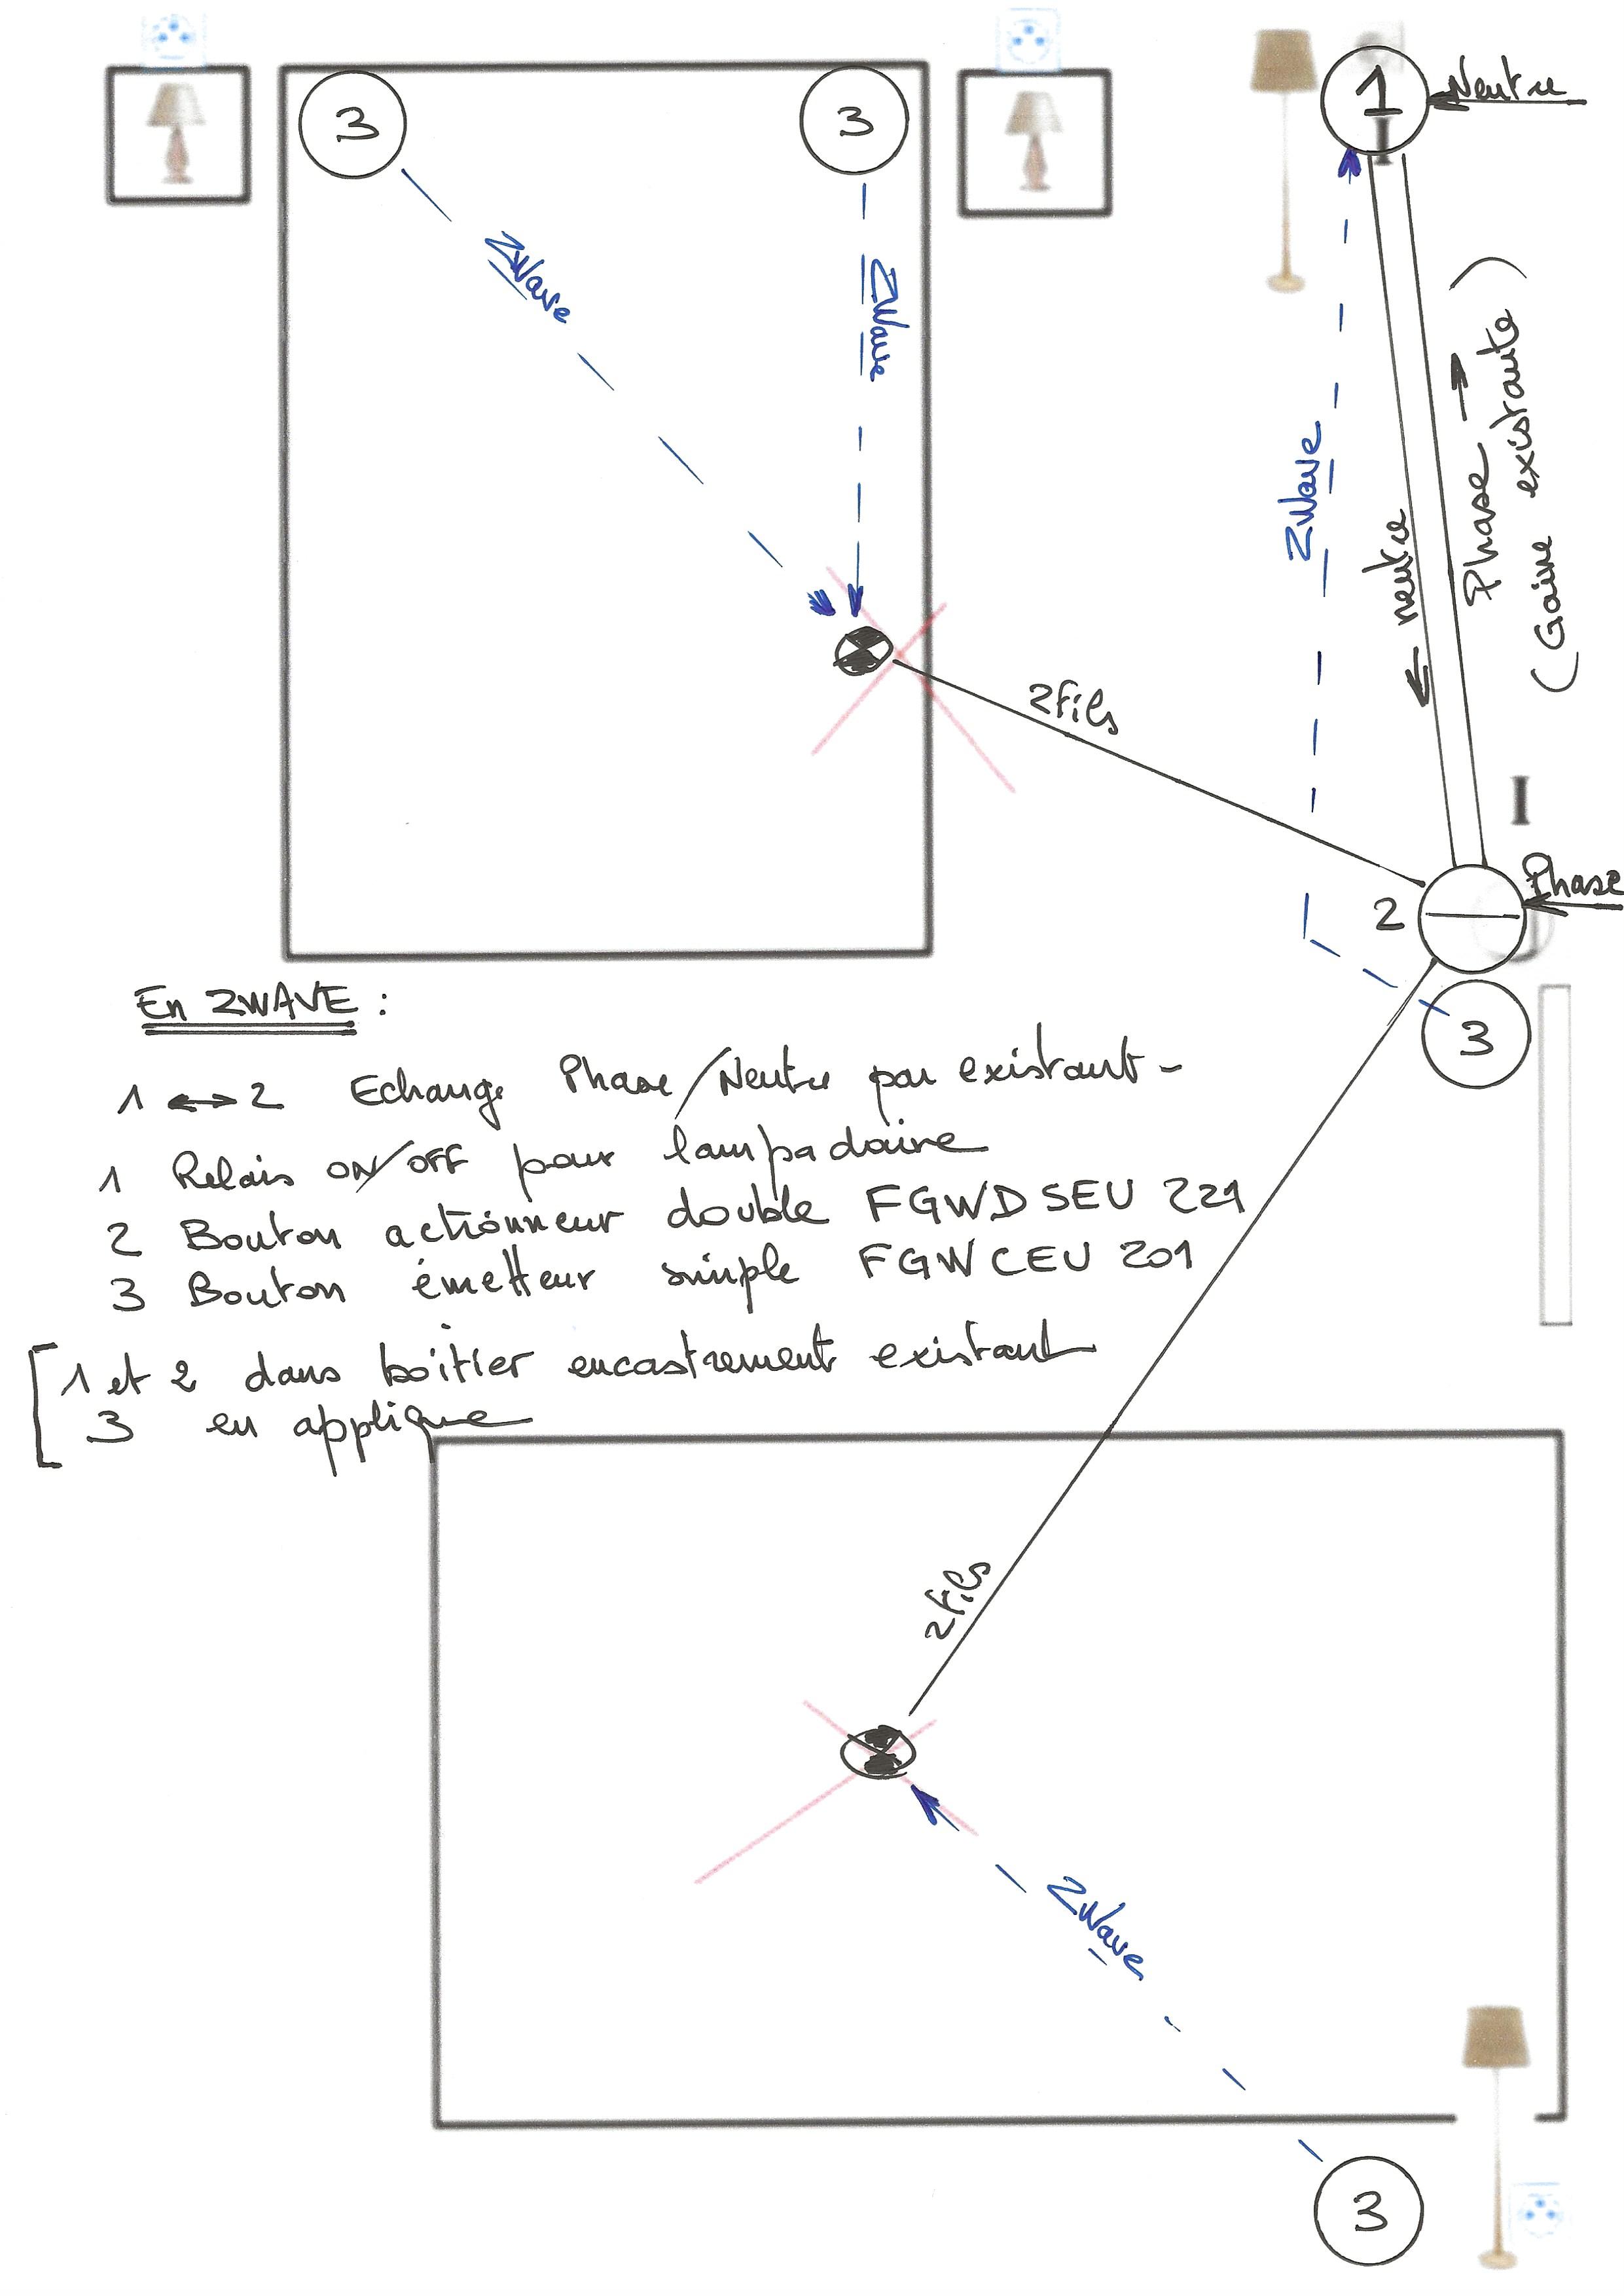 3
3
1
I
Neutre
ZWave
ZWave
ZWave
← neutre
Phase →
(Gaine existante)
2 fils
I
2
Phase
3
En ZWAVE :
1 ↔ 2 Echange Phase/Neutre par existant -
1 Relais ON/OFF pour lampadaire
2 Bouton actionneur double FGWDSEU 221
3 Bouton émetteur simple FGWCEU 201
[1 et 2 dans boîtier encastrement existant
3 en applique
2 fils
ZWave
3